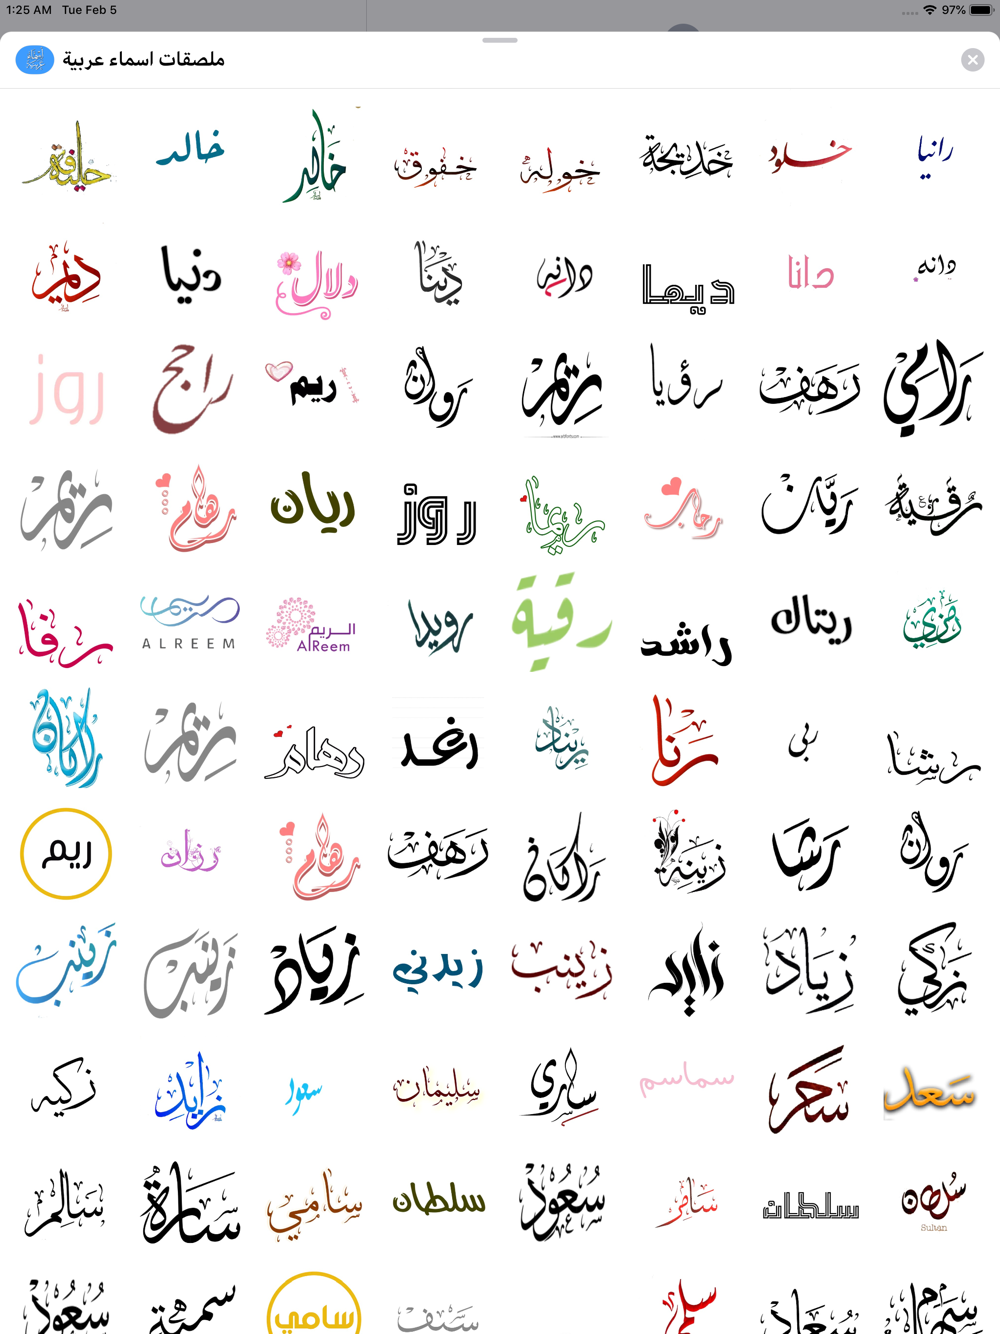 1:25 AM Tue Feb 5 97%
ملصقات اسماء عربية
رانيا خلود خديجة خوله خفوق خالد خالد خليفة
دانه دانا ديما دانه دينا دلال دنيا ديم
رامي رهف رؤيا ريم روان ريم راجح روز
رقية ريان رحاب ريما روز ريان رهام ريم
رمزي ريتاك راشد رقية رويدا الريم AlReem ريم ALREEM رفا
رشا ربى رنا ريناد رغد رهام ريم راكان
روان رشا زينة راكان رهف رهام رزان ريم
زكي زياد زايد زينب زيدني زياد زينب زينب
سعد سحر سماسم ساري سليمان سعود زايد زكيه
سلطان Sultan سلطان سامر سعود سلطان سامي سارة سالم
سهام سعاد سلمى سيف سامي سمية سعود